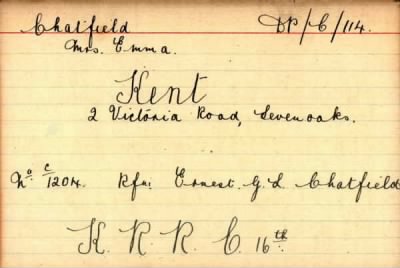 Chatfield DP/C/114.
Mrs. Emma.
Kent
2 Victoria Road, Sevenoaks.
No. C/1204. Rfn: Ernest. G. L. Chatfield
K. R. R. C. 16th.